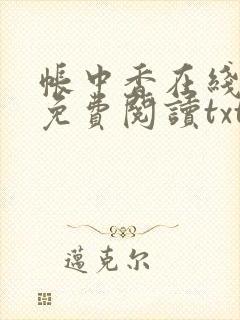 帳中香在綫
免費閱讀txt
邁克尔